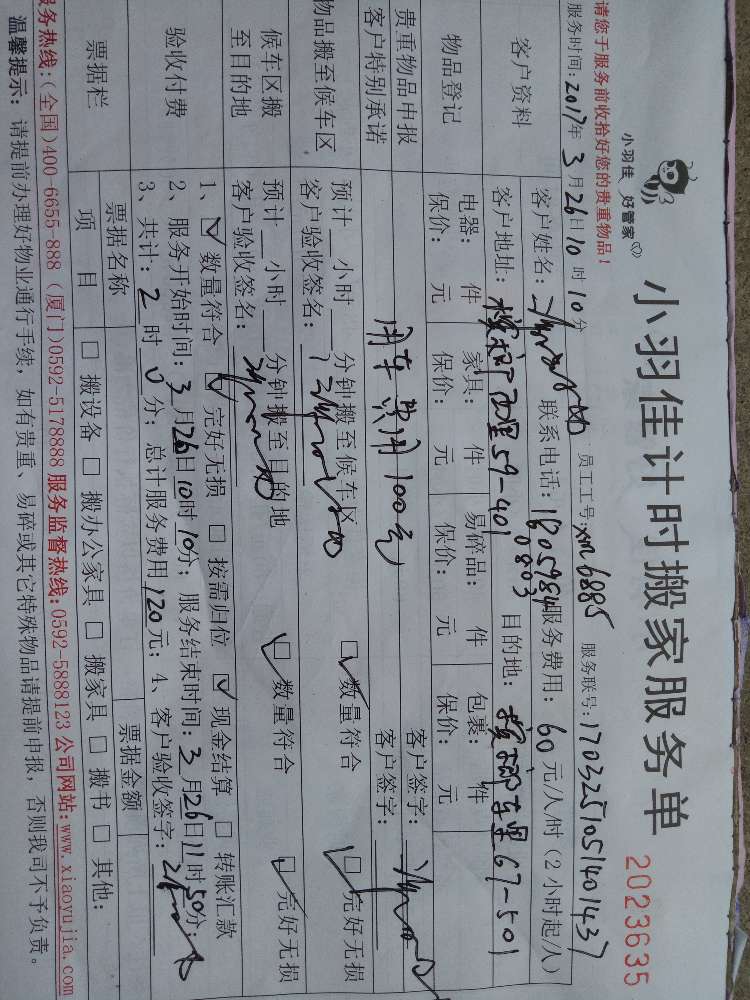 小羽佳 好管家
小羽佳计时搬家服务单
2023635
请您于服务前收拾好您的贵重物品!
服务时间:2017年3月26日10时10分 员工工号:xm6885 服务联号:1703251051401437
客户资料
客户姓名: 联系电话: 服务费用:60元/人/时(2小时起/人)
客户地址: 59-401 目的地: 67-501
物品登记
电器: 件 家具: 件 易碎品: 件 包裹: 件
保价: 元 保价: 元 保价: 元 保价: 元
客户签字:
贵重物品申报
客户特别承诺
用车费用100元
客户签字:
物品搬至候车区
预计__小时__分钟搬至候车区 □数量符合 □完好无损
客户验收签名:
候车区搬
至目的地
预计__小时__分钟搬至目的地 □数量符合 □完好无损
客户验收签名:
验收付费
1、☑数量符合 ☑完好无损 □按需归位 ☑现金结算 □转账汇款
2、服务开始时间:3月26日10时10分;服务结束时间:3月26日11时50分;
3、共计:2时0分;总计服务费用120元;4、客户验收签字:
票据栏
票据名称 票据金额
项目 □搬设备 □搬办公家具 □搬家具 □搬书 □其他:
服务热线:(全国)400-6655-888 (厦门)0592-5178888 服务监督热线:0592-5888123 公司网站:www.xiaoyujia.com
温馨提示:请提前办理好物业通行手续,如有贵重、易碎或其它特殊物品请提前申报,否则我司不予负责。